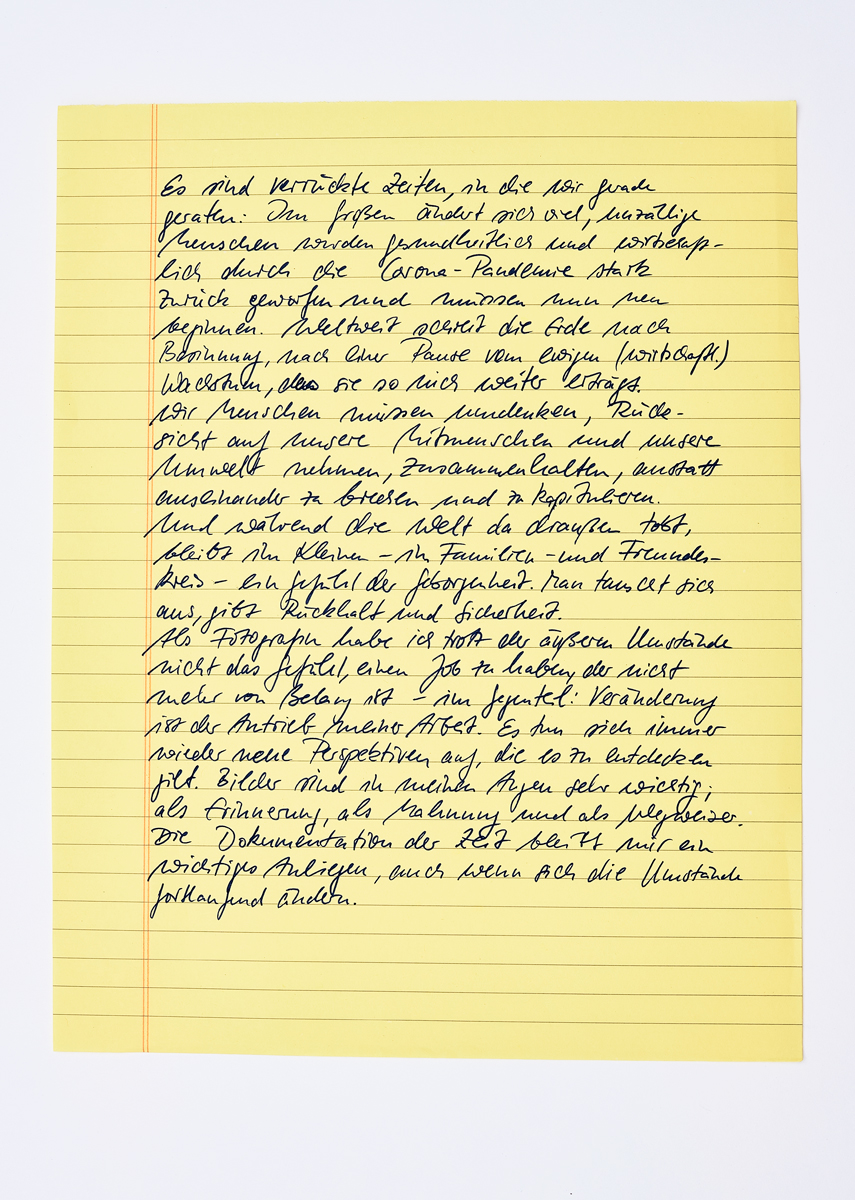 Es sind verrückte Zeiten, in die wir gerade
geraten: Im Großen ändert sich viel, unzählige
Menschen wurden gesundheitlich und wirtschaft-
lich durch die Corona-Pandemie stark
zurück geworfen und müssen nun neu
beginnen. Weltweit schreit die Erde nach
Besinnung, nach einer Pause vom ewigen (wirtschaftl.)
Wachstum, das sie so nich weiter erträgt.
Wir Menschen müssen umdenken, Rück-
sicht auf unsere Mitmenschen und unsere
Umwelt nehmen, zusammenhalten, anstatt
auseinander zu brechen und zu kapitulieren.
Und während die Welt da draußen tobt,
bleibt im Kleinen - im Familien- und Freundes-
kreis - ein Gefühl der Geborgenheit. Man tauscht sich
aus, gibt Rückhalt und Sicherheit.
Als Fotografin habe ich trotz der äußeren Umstände
nicht das Gefühl, einen Job zu haben, der nicht
mehr von Belang ist - im Gegenteil: Veränderung
ist der Antrieb meiner Arbeit. Es tun sich immer
wieder neue Perspektiven auf, die es zu entdecken
gilt. Bilder sind in meinen Augen sehr wichtig;
als Erinnerung, als Mahnung und als Wegweiser.
Die Dokumentation der Zeit bleibt mir ein
wichtiges Anliegen, auch wenn sich die Umstände
fortlaufend ändern.